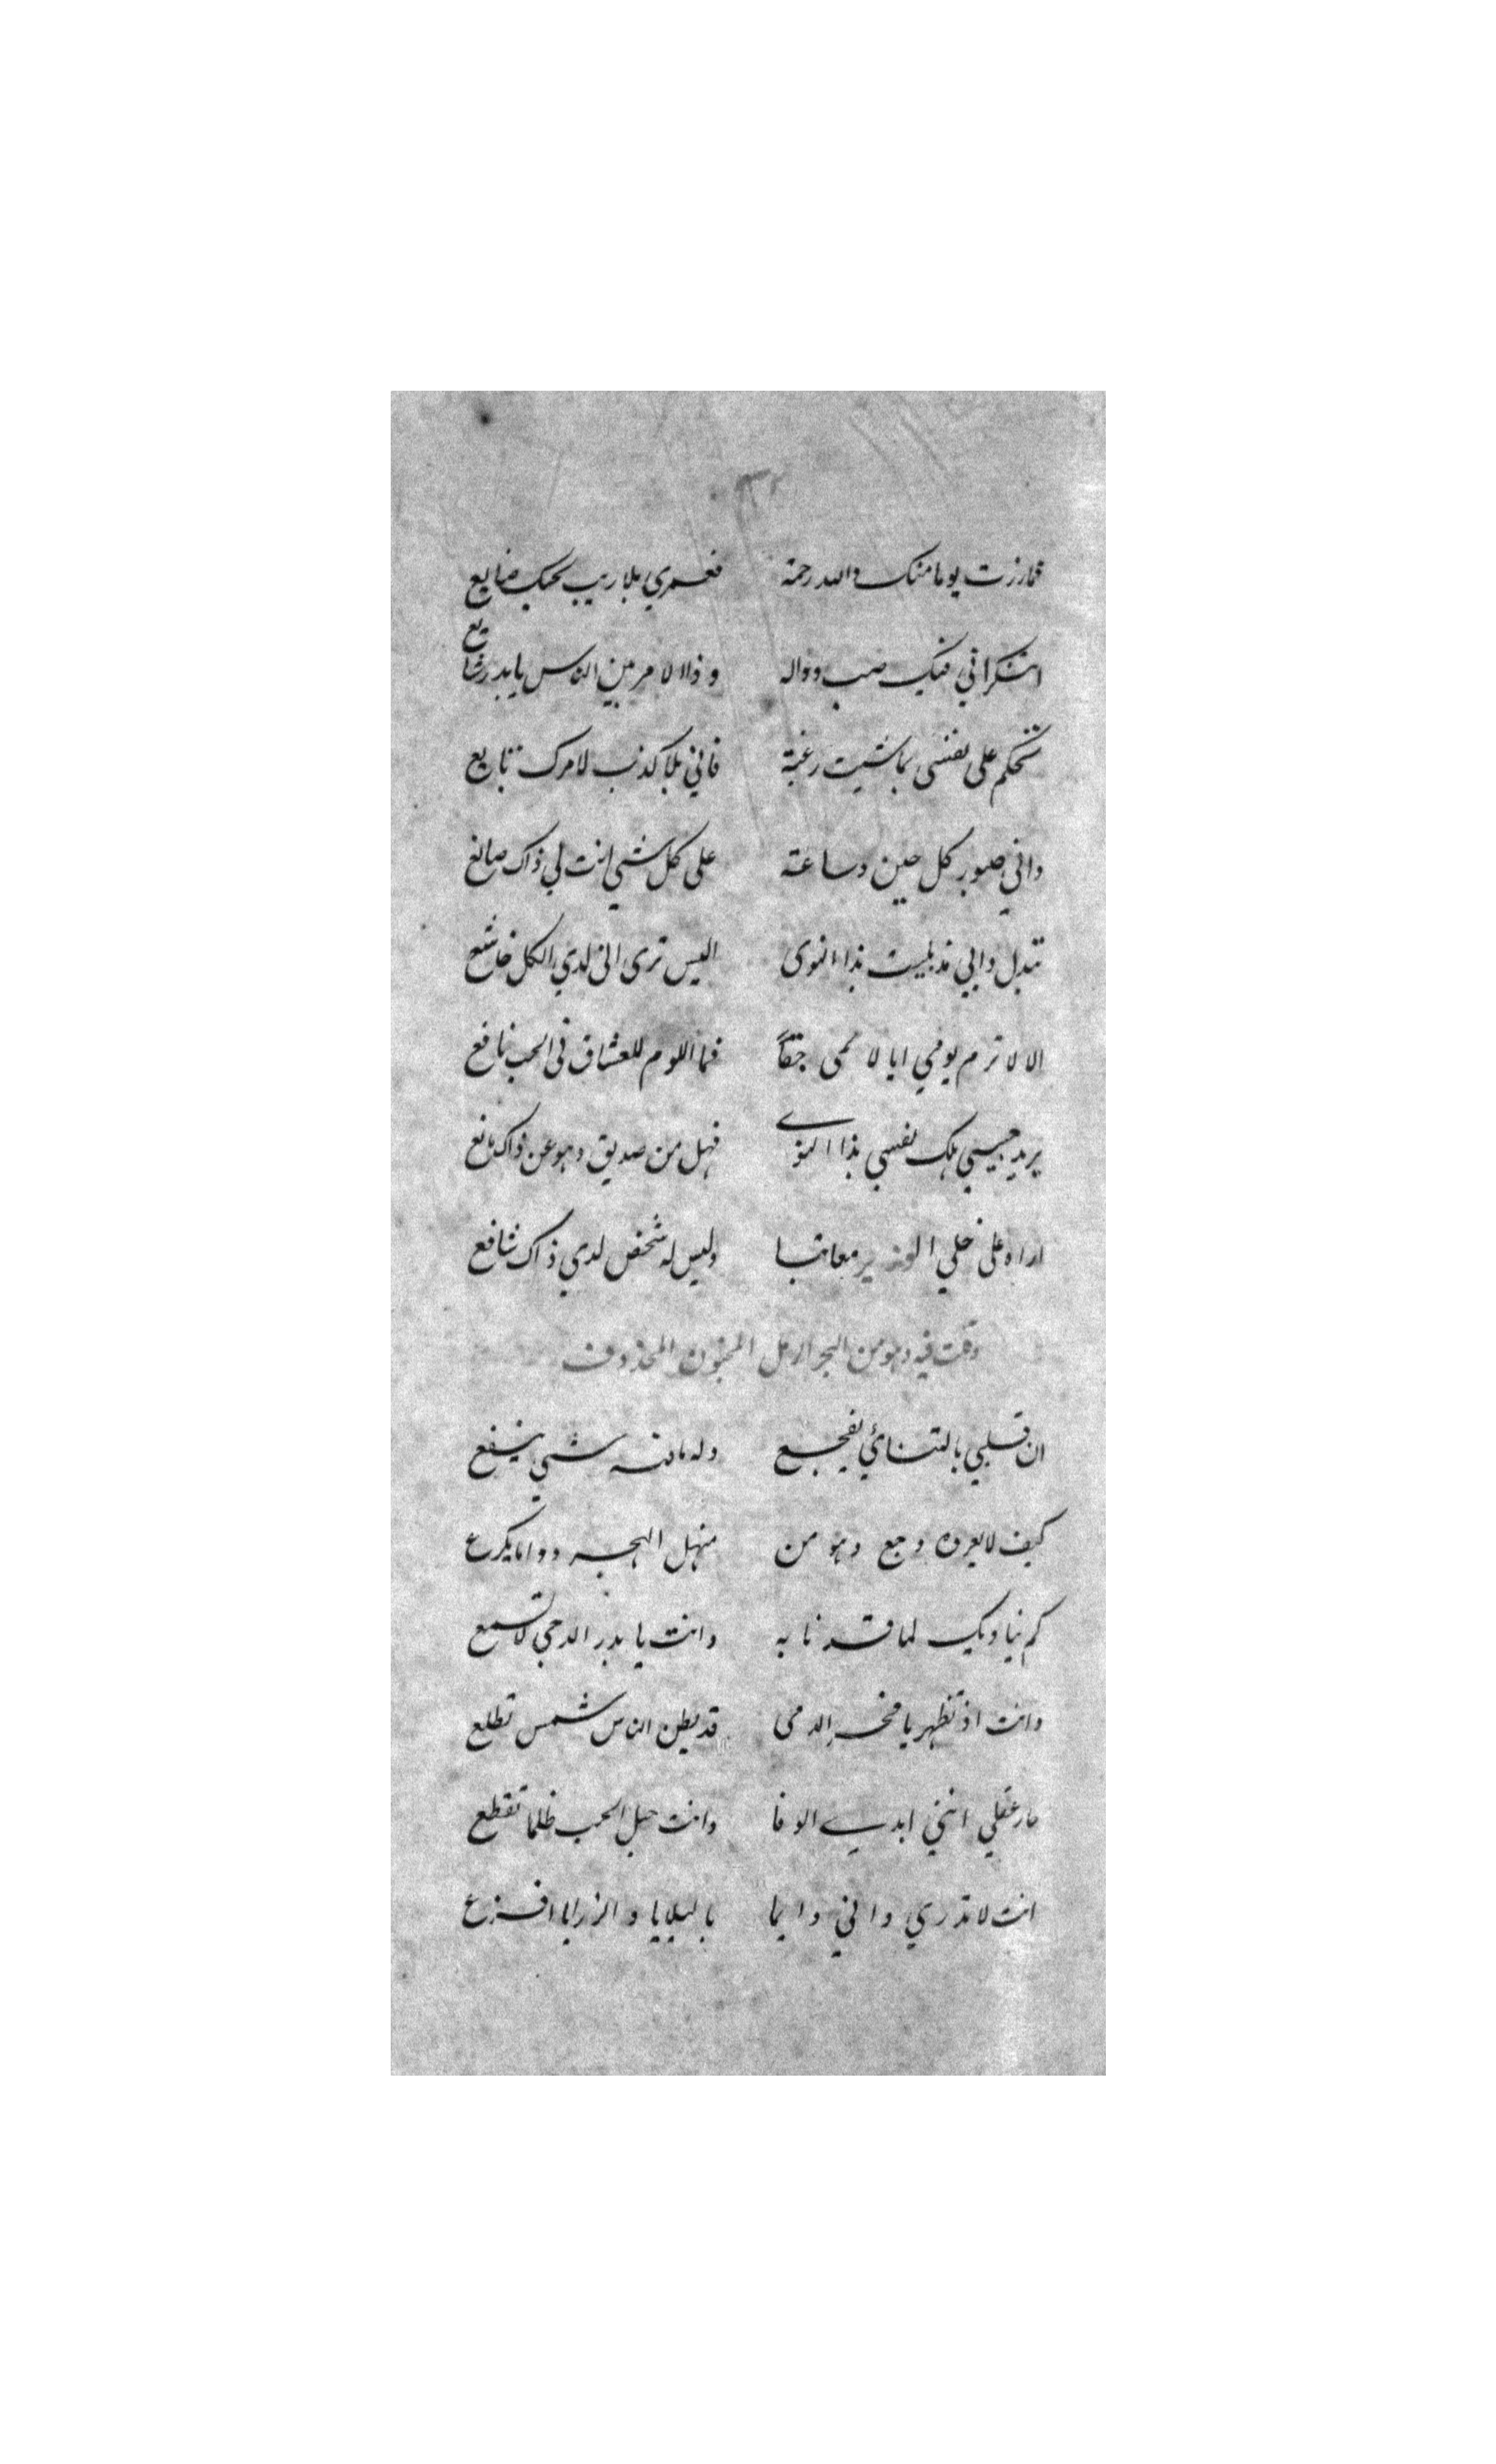 ١٣٢
فما رزت يوما منك والله رحمة فعمري بلا ريب بحبك ضايع
اتنكر اني فيك صب وواله وذا الامر بين الناس يا بدر شايع
تحكم على نفسي بما شيت رغبة فاني بلا كذب لامرك تابع
واني صبور كل حين وساعة على كل شي انت لي ذاك صانع
تبدل دابي مذ بليت بذا النوى اليس ترى اني لدي الكل خاشع
الا لا ترم لومي ايا لائمي حقا فما اللوم للعشاق في الحب نافع
يريد حبيبي هلك نفسي بذا النوے فهل من صديق وهو عن ذاك مانع
اراه على خلي الوزير معاتبا وليس له شخص لدي ذاك شافع
وقلت فيه وهو من البحر الرمل المخبون المحذوف
ان قلبي بالتنائي يفجع وله ما منه شي ينفع
كيف لا يعروه وجع وهو من منهل الهجر دواما يكرع
كم يناديك لما قد نابه وانت يا بدر الدجي لا تسمع
وانت اذ تظهر يا فخر الدمى قد يظن الناس شمس تطلع
حار عقلي انني ابدے الوفا وانت حبل الحب ظلما تقطع
انت لا تدري واني دايما بالبلايا والرزايا افزع